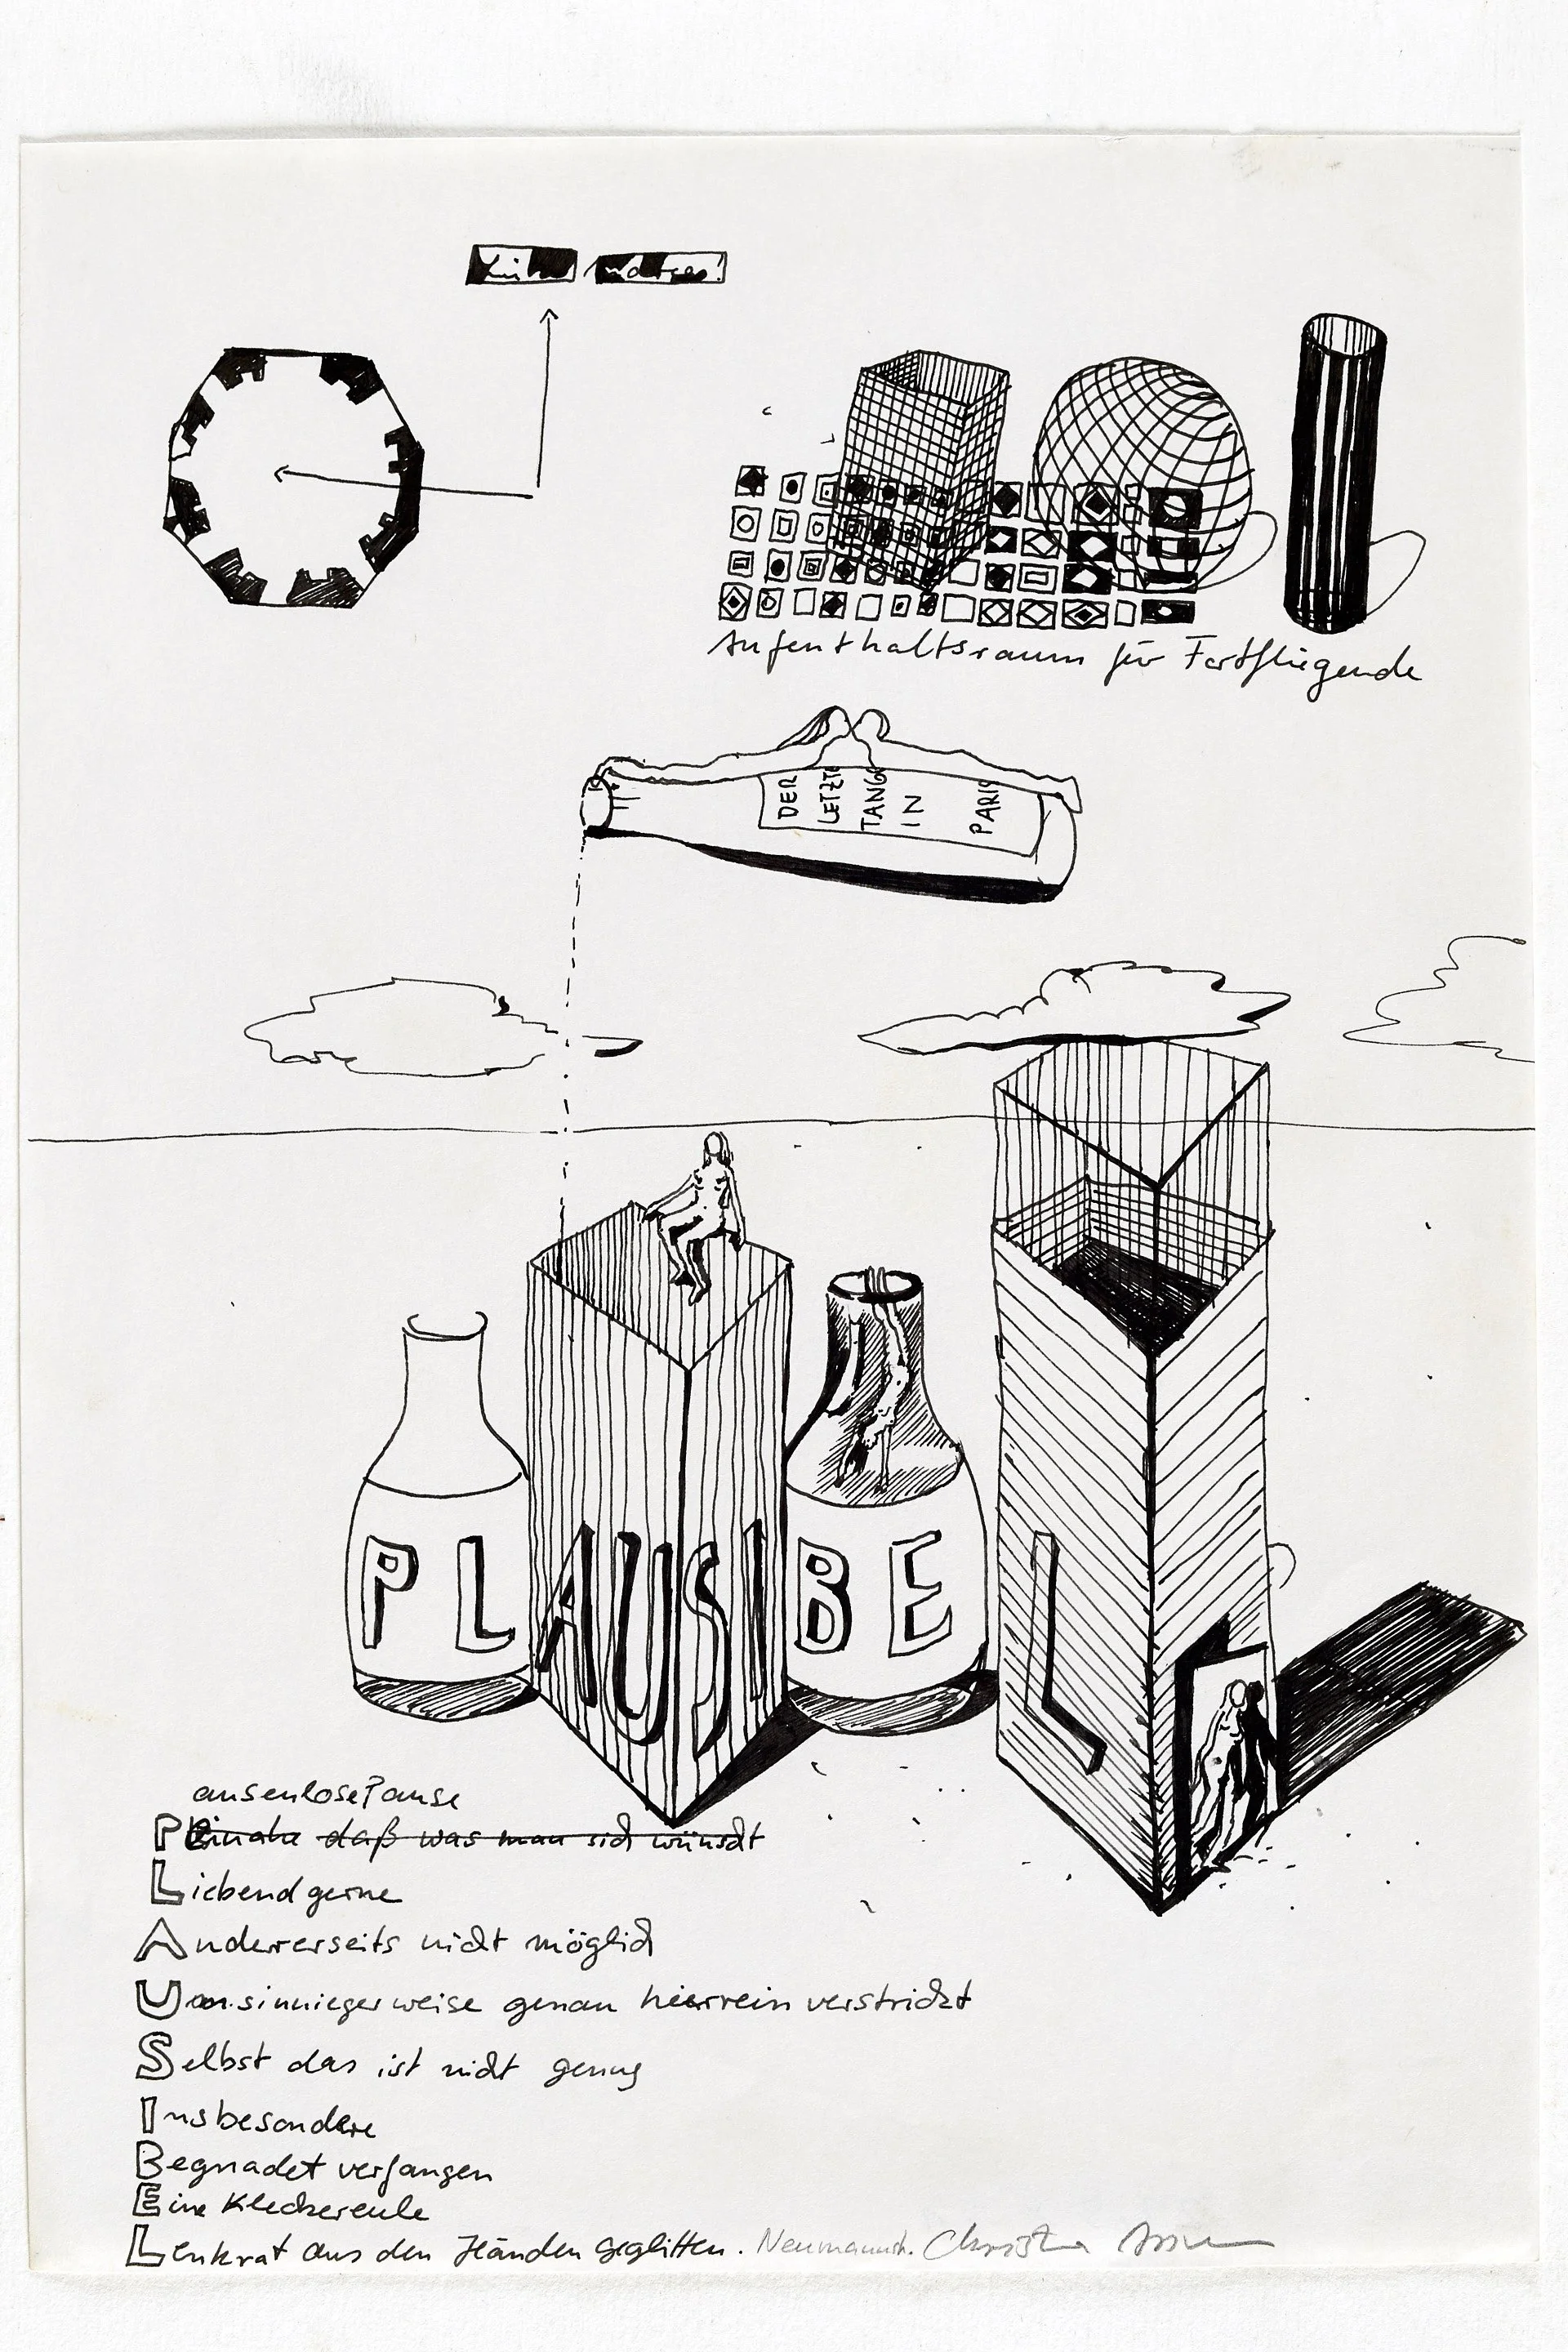 Aufenthaltsraum für Fortfliegende
DER
LETZTE
TANGO
IN
PARIS
PLAUSIBEL
ausenlosePause
P
daß was man sich wünscht
Liebend gerne
Andererseits nicht möglich
Unsinnigerweise genau hierrein verstrickt
Selbst das ist nicht genug
Insbesondere
Begnadet verfangen
Eine Kleckereule
Lenkrat aus den Händen geglitten. Christa